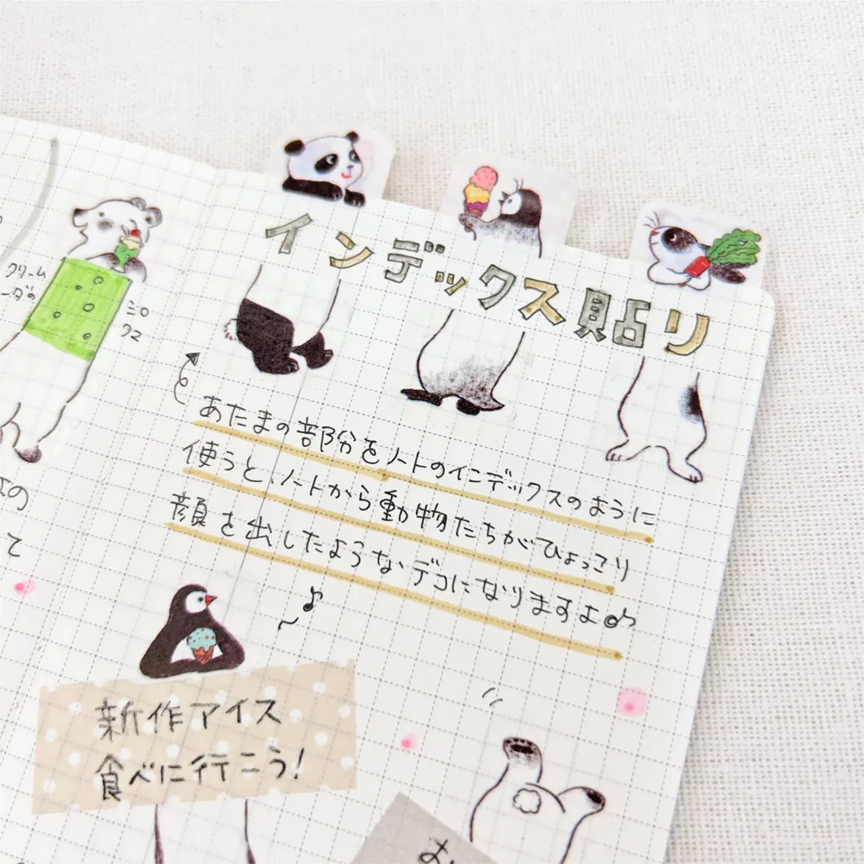 インデックス貼り
クリーム
シロ
クマ
あたまの部分をノートのインデックスのように
使うと、ノートから動物たちがひょっこり
顔を出したようなデコになりますよ
の
て
新作アイス
食べに行こう!
む